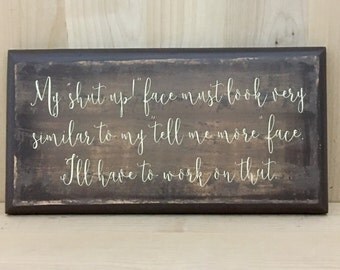 My "shut up!" face must look very
similar to my "tell me more" face.
I'll have to work on that.